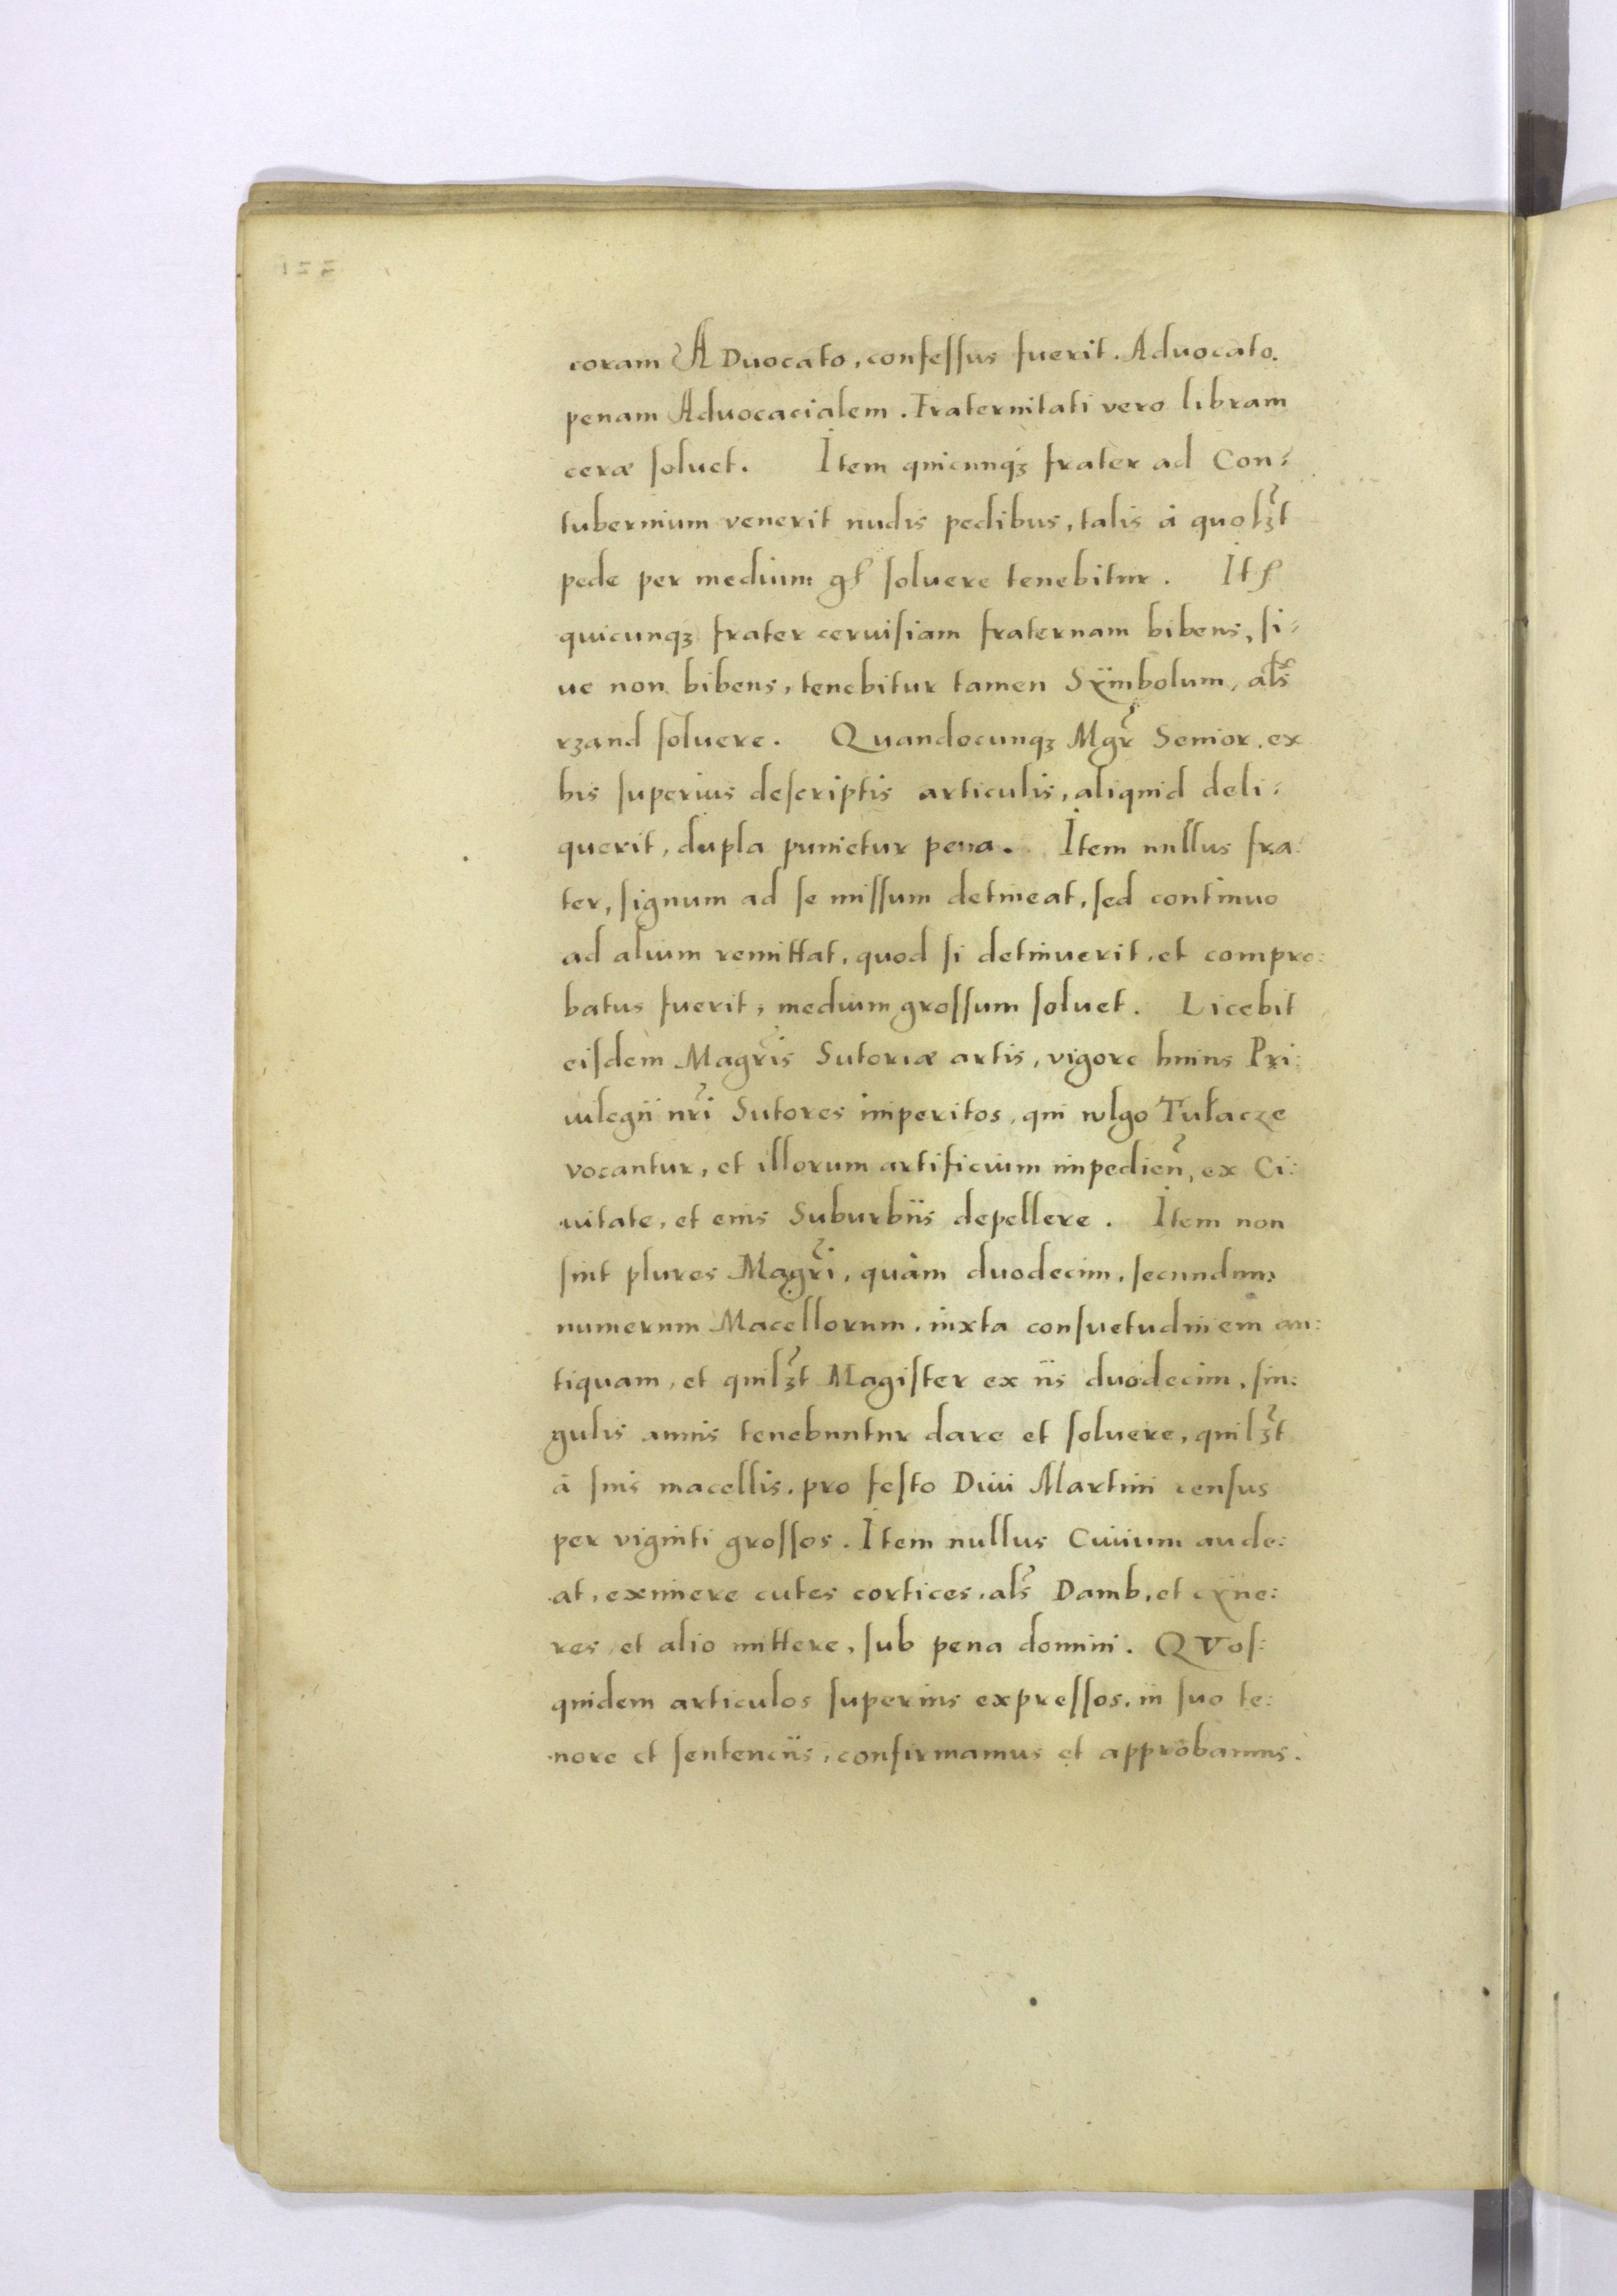 coram ADuocato, confessus fuerit. Aduocato.
penam Aduocacialem. Fraternitati vero libram
ceræ soluet. Item quicunqꝫ frater ad Con:
tubernium venerit nudis pedibus, talis à quolꝫt
pede per medium gſ soluere tenebitur. Itſ
quicunqꝫ frater ceruisiam fraternam bibens, si:
ue non bibens, tenebitur tamen Sÿmbolum, als
rzand soluere. Quandocunqꝫ Mgr̃ Senior, ex
his superius descriptis articulis, aliquid deli:
querit, dupla punietur pena. Item nullus fra:
ter, signum ad se missum detineat, sed continuo
ad alium remittat, quod si detinuerit, et compro:
batus fuerit, medium grossum soluet. Licebit
eisdem Magris Sutoriæ artis, vigore huius Pri:
uilegii nr̃i Sutores imperitos, qui vulgo Tułacze
vocantur, et illorum artificium impedien̄, ex Ci:
uitate, et eius Suburbiis depellere. Item non
sint plures Magr̃i, quàm duodecim, secundum
numerum Macellorum, iuxta consuetudinem an:
tiquam, et quilꝫt Magister ex iis duodecim, sin:
gulis annis tenebuntur dare et soluere, quilꝫt
à suis macellis, pro festo Diui Martini census
per viginti grossos. Item nullus Ciuium aude:
at, eximere cutes cortices, als Damb, et cÿne:
res, et alio mittere, sub pena domini. QVos:
quidem articulos superius expressos, in suo te:
nore et sentenciis, confirmamus et approbamus.